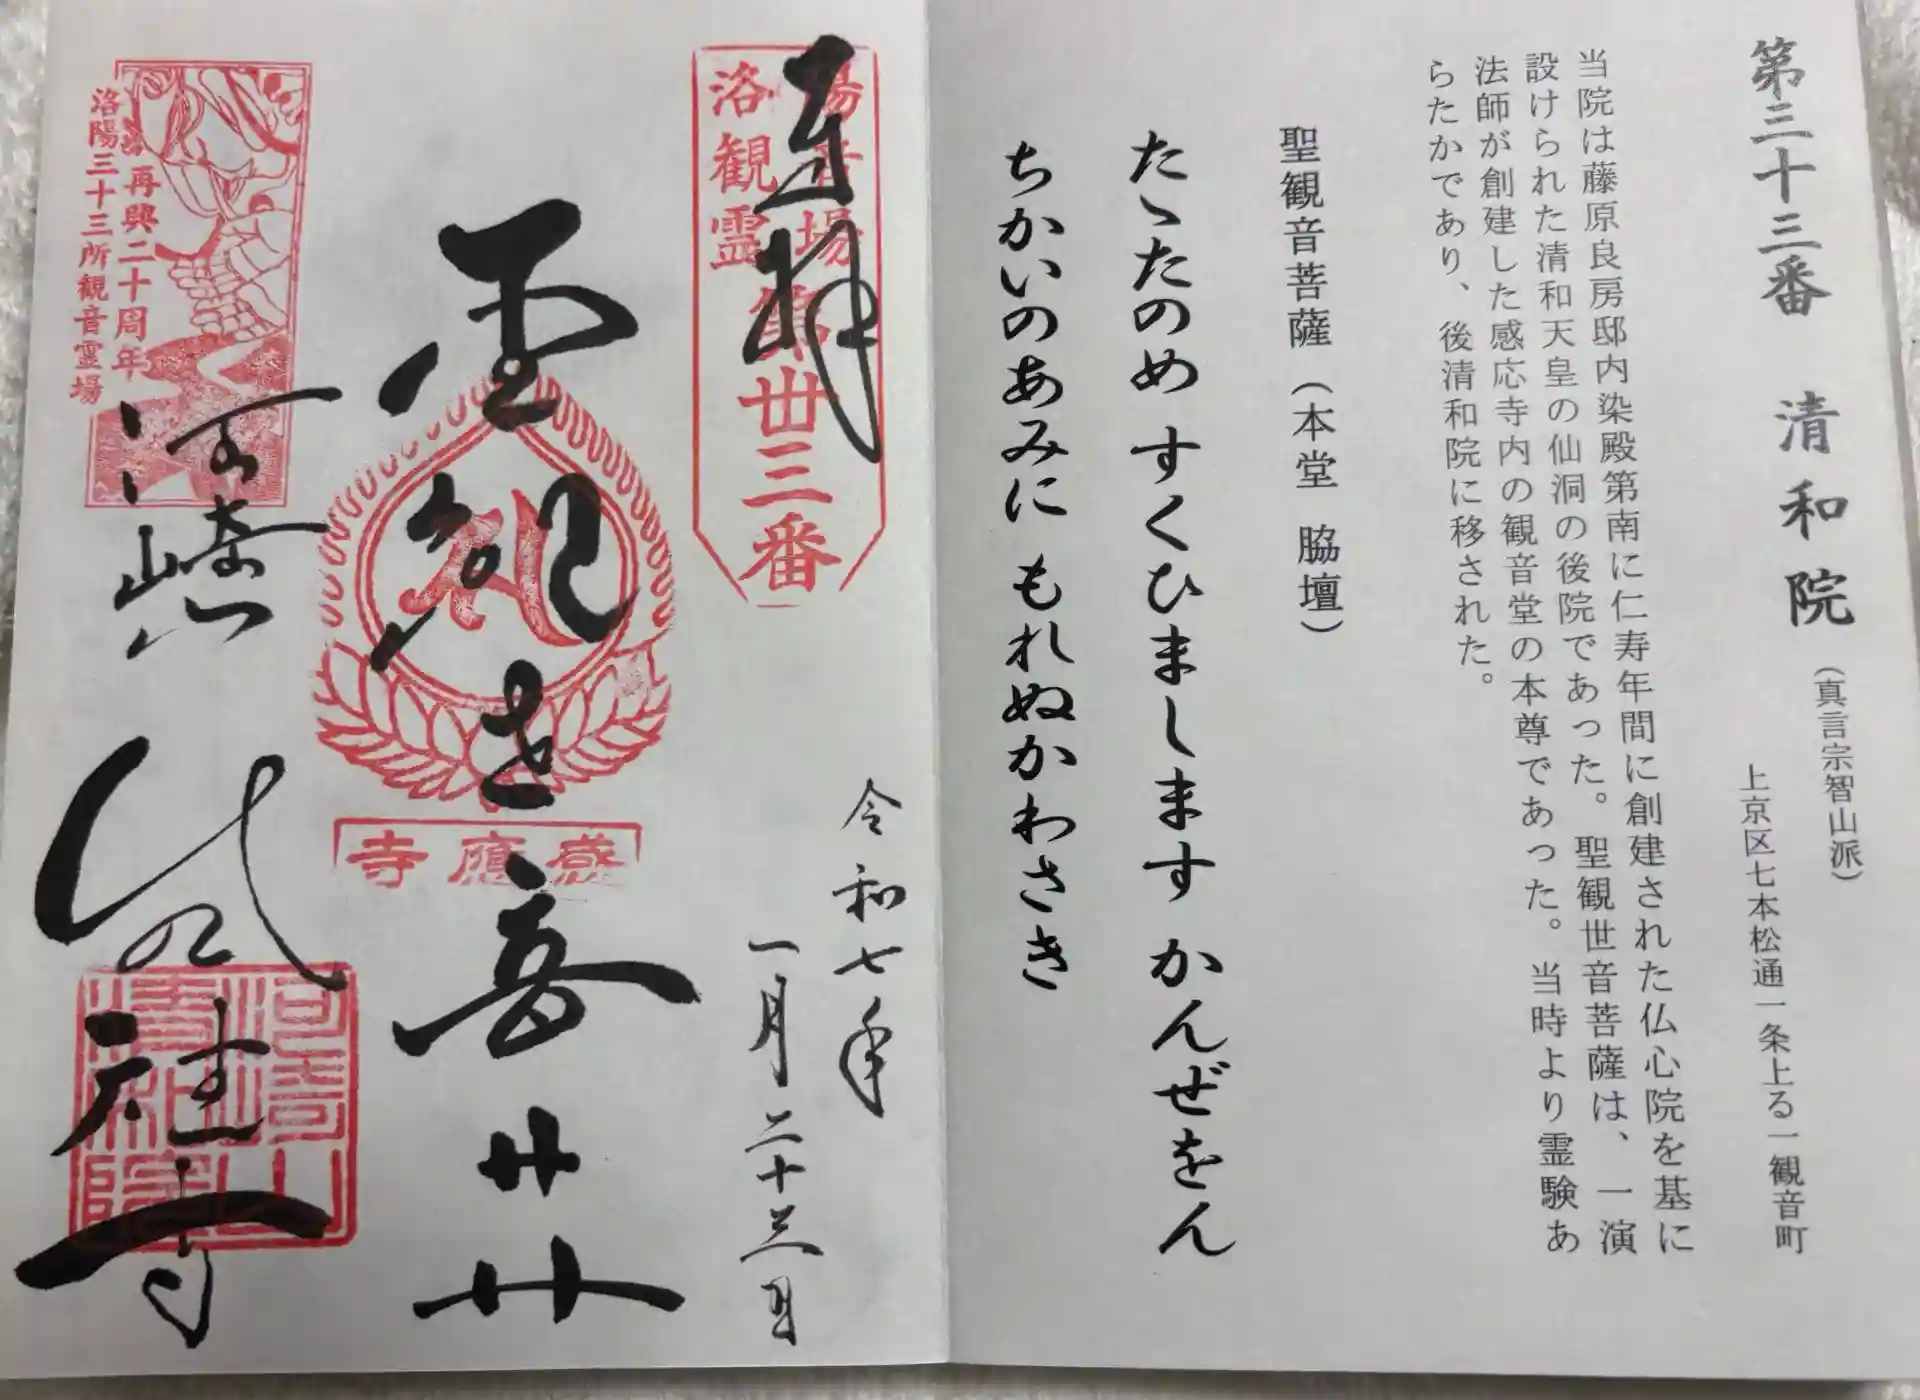 第三十三番 清和院 (真言宗智山派)
上京区七本松通一条上る一観音町
当院は藤原良房邸内染殿第南に仁寿年間に創建された仏心院を基に
設けられた清和天皇の仙洞の後院であった。聖観世音菩薩は、一演
法師が創建した感応寺内の観音堂の本尊であった。当時より霊験あ
らたかであり、後清和院に移された。
聖観音菩薩(本堂 脇壇)
たゝたのめ すくひまします かんぜをん
ちかいのあみに もれぬかわさき
奉拝
洛陽
観音
霊場
第卅三番
令和七年
一月二十三日
聖観世音廾廾
感應寺
再興二十周年
洛陽三十三所観音霊場
河嵜山清和院